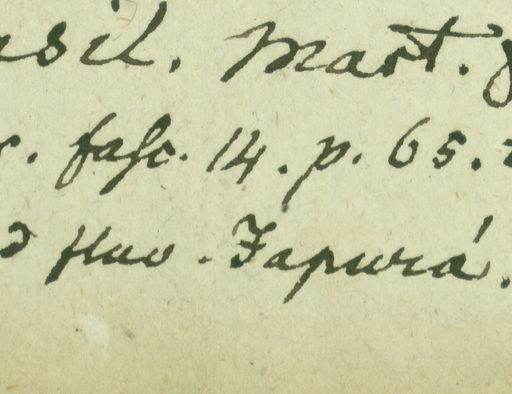 asil. Mart.
c. fasc. 14. p. 65.
d fluv. Japurá.